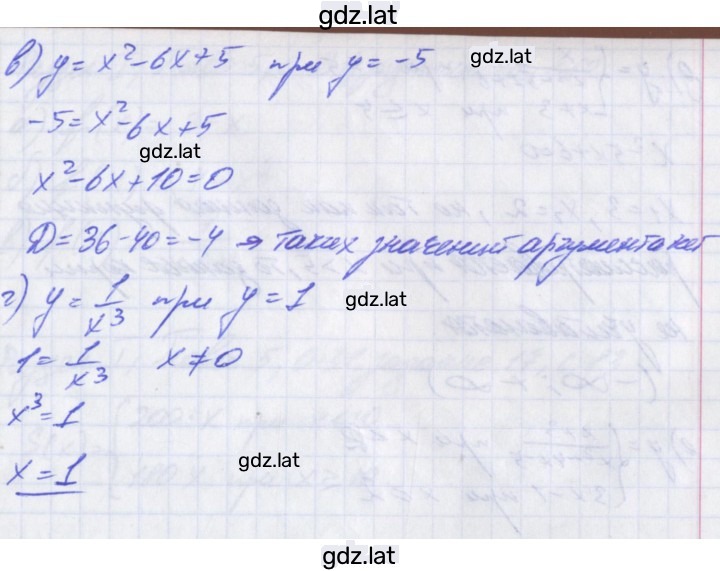 gdz.lat
в) y = x² - 6x + 5 при y = -5 gdz.lat
-5 = x² - 6x + 5
gdz.lat
x² - 6x + 10 = 0
D = 36 - 40 = -4 → таких значений аргумента нет
г) y = 1/x³ при y = 1 gdz.lat
1 = 1/x³ x ≠ 0
x³ = 1
gdz.lat
x = 1
gdz.lat